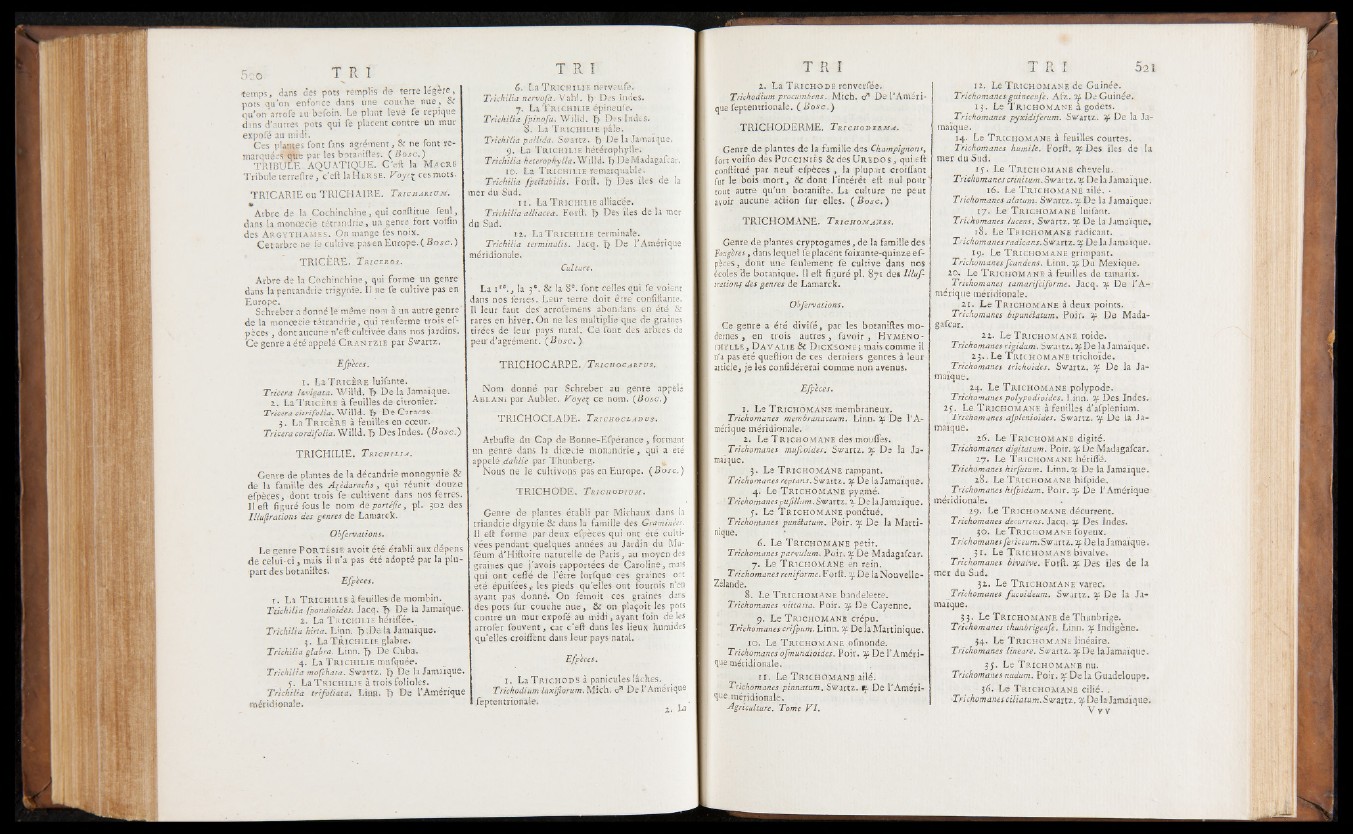 520 TRI
temps, dans des pots remplis de terre légère,
pots qu'on enfonce dans une couche nue, &
qu'on arrose au besoin. Le plant levé se repique
dans d'autres pots qui se placent contre un mur
exposé au midi.
Ces plantes sont sans agrément, & ne sont re-
marquées que par les botanistes. (Bosc.)
TRIBULE AQUATIQUE. C'est la MACRE
Tribule terrestre, c'est la HERSE. Voyez ces mots.
TRICARIE ou TRICHAIRE. TRICHARIUM.
Arbre de la Cochinchine, qui constitue seul,
dans la monœcie tétrandrie, un genre fort voisin
des ARGYTHAMES. On mange ses noix.
Cet arbre ne se cultive pas en Europe. (Bosc.)
TRICÈRE. TRICEROS.
Arbre de la Cochinchine, qui forme un genre
dans la pentandrie trigynie. Il ne se cultive pas en
Europe.
Schreber a donné le même nom à un autre genre
de la monœcie tétrandrie, qui renferme trois es-
pèces, dont aucune n'est cultivée dans nos jardins.
Ce genre a été appelé CRANTZIE par Swartz.
Espèces.
1. La TRICÈRE luisante.
Tricera lævigata. Willd. ♄ De la Jamaïque.
2. La TRICÈRE à feuilles de citronier.
Tricera citrifolia. Willd. ♄ De Caracas.
3. La TRICÈRE à feuilles en cœur.
Tricera cordifolia. Willd. ♄ Des Indes. (Bosc.)
TRICHILIE. TRICHILIA.
Genre de plantes de la décandrie monogynie &
de la famille des Azédarachs, qui réunit douze
espèces, dont trois se cultivent dans nos serres.
Il est figuré sous le nom de portésie, pl. 302 des
Illustrations des genres de Lamarck.
Observations.
Le genre PORTÉSIE avoit été établi aux dépens
de celui-ci, mais il n'a pas été adopté par la plu-
part des botanistes.
Espèces.
1. La TRICHILIE à feuilles de mombin.
Trichilia spondioides. Jacq. ♄ De la Jamaïque.
2. La TRICHILIE hérissée.
Trichilia hirta. Linn. ♄ De la Jamaïque.
3. La TRICHILIE glabre.
Trichilia glabra. Linn. ♄ De Cuba.
4. La TRICHILIE musquée.
Trichilia moschata. Swartz. ♄ De la Jamaïque.
5. La TRICHILIE à trois folioles.
Trichilia trifoliata. Linn. ♄ De l'Amérique
méridionale.
TRI
6. La TRICHILIE nerveuse.
Trichilia nervosa. Vahl. ♄ Des Indes.
7. La TRICHILIE épineuse.
Trichilia spinosa. Willd. ♄ Des Indes.
8. La TRICHILIE pâle.
Trichilia pallida. Swartz. ♄ De la Jamaïque.
9. La TRICHILIE hétérophylle.
Trichilia heterophylla. Willd. ♄ De Madagascar.
10. La TRICHILIE remarquable.
Trichilia spectabilis. Forst. ♄ Des îles de la
mer du Sud.
11. La TRICHILIE alliacée.
Trichilia alliacea. Forst. ♄ Des îles de la mer
du Sud.
12. La TRICHILIE terminale.
Trichilia terminalis. Jacq. ♄ De l'Amérique
méridionale.
Culture.
La 1re., la 3e. & la 8e. sont celles qui se voient
dans nos serres. Leur terre doit être consistante.
Il leur faut des arrosemens abondans en été &
rares en hiver. On ne les multiplie que de graines
tirées de leur pays natal. Ce sont des arbres de
peu d'agrément. (Bosc.)
TRICHOCARPE. TRICHOCARPUS.
Nom donné par Schreber au genre appelé
ABLANI par Aublet. Voyez ce nom. (Bosc.)
TRICHOCLADE. TRICHOCLADUS.
Arbuste du Cap de Bonne-Espérance, formant
un genre dans la diœcie monandrie, qui a été
appelé dahlie par Thunberg.
Nous ne le cultivons pas en Europe. (Bosc.)
TRICHODE. TRICHODIUM.
Genre de plantes établi par Michaux dans la
triandrie digynie & dans la famille des Graminées.
Il est formé par deux espèces qui ont été culti-
vées pendant quelques années au Jardin du Mu-
séum d'Histoire naturelle de Paris, au moyen des
graines que j'avois rapportées de Caroline, mais
qui ont cessé de l'être lorsque ces graines ont
été épuisées, les pieds qu'elles ont fournis n'en
ayant pas donné. On semoit ces graines dans
des pots sur couche nue, & on plaçoit les pots
contre un mur exposé au midi, ayant soin de les
arroser souvent, car c'est dans les lieux humides
qu'elles croissent dans leur pays natal.
Espèces.
1. La TRICHODE à panicules lâches.
Trichodium laxiflorum. Mich. ♂ De l'Amérique
septentrionale.
2. La
TRI
2. La TRICHODE renversée.
Trichodium procumbens. Mich. ♂ De l'Améri-
que septentrionale. (Bosc.)
TRICHODERME. TRICHODERMA.
Genre de plantes de la famille des Champignons,
fort voisin des PUCCINIES & des UREDOS, qui est
constitué par neuf espèces, la plupart croissant
sur le bois mort, & dont l'intérêt est nul pour
tout autre qu'un botaniste. La culture ne peut
avoir aucune action sur elles. (Bosc.)
TRICHOMANE. TRICHOMANES.
Genre de plantes cryptogames, de la famille des
Fougères, dans lequel se placent soixante-quinze es-
pèces, dont une seulement se cultive dans nos
écoles de botanique. Il est figuré pl. 871 des Illus-
trations des genres de Lamarck.
Observations.
Ce genre a été divisé, par les botanistes mo-
dernes, en trois autres, savoir, HYMENO-
PHYLLE, DAVALIE & DICKSONE; mais comme il
n'a pas été question de ces derniers genres à leur
article, je les considérerai comme non avenus.
Espèces.
1. Le TRICHOMANE membraneux.
Trichomanes membranaceum. Linn. ♃ De l'A-
mérique méridionale.
2. Le TRICHOMANE des mousses.
Trichomanes muscoides. Swartz. ♃ De la Ja-
maïque.
3. Le TRICHOMANE rampant.
Trichomanes reptans. Swartz. ♃ De la Jamaïque.
4. Le TRICHOMANE pygmé.
Trichomanes pusillum. Swartz. ♃ De la Jamaïque.
5. Le TRICHOMANE ponctué.
Trichomanes punctatum. Poir. ♃ De la Marti-
nique.
6. Le TRICHOMANE petit.
Trichomanes parvulum. Poir. ♃ De Madagascar.
7. Le TRICHOMANE en rein.
Trichomanes reniforme. Forst. ♃ De la Nouvelle-
Zélande.
8. Le TRICHOMANE bandelette.
Trichomanes vittaria. Poir. ♃ De Cayenne.
9. Le TRICHOMANE crépu.
Trichomanes crispum. Linn. ♃ De la Martinique.
10. Le TRICHOMANE osmonde.
Trichomanes osmundioides. Poir. ♃ De l'Améri-
que méridionale.
11. Le TRICHOMANE ailé.
Trichomanes pinnatum. Swartz. ♃ De l'Améri-
que méridionale.
Agriculture. Tome VI.
TRI 521
12. Le TRICHOMANE de Guinée.
Trichomanes guineense. Afz. ♃ De Guinée.
13. Le TRICHOMANE à godets.
Trichomanes pyxidiferum. Swartz. ♃ De la Ja-
maïque.
14. Le TRICHOMANE à feuilles courtes.
Trichomanes humile. Forst. ♃ Des îles de la
mer du Sud.
15. Le TRICHOMANE chevelu.
Trichomanes crinitum. Swartz. ♃ De la Jamaïque.
16. Le TRICHOMANE ailé.
Trichomanes alatum. Swartz. ♃ De la Jamaïque.
17. Le TRICHOMANE luisant.
Trichomanes lucens. Swartz. ♃ De la Jamaïque.
18. Le TRICHOMANE radicant.
Trichomanes radicans. Swartz. ♃ De la Jamaïque.
19. Le TRICHOMANE grimpant.
Trichomanes scandens. Linn. ♃ Du Mexique.
20. Le TRICHOMANE à feuilles de tamarix.
Trichomanes tamarisciforme. Jacq. ♃ De l'A-
mérique méridionale.
21. Le TRICHOMANE à deux points.
Trichomanes bipunctatum. Poir. ♃ De Mada-
gascar.
22. Le TRICHOMANE roide.
Trichomanes rigidum. Swartz. ♃ De la Jamaïque.
23. Le TRICHOMANE trichoïde.
Trichomanes trichoides. Swartz. ♃ De la Ja-
maïque.
24. Le TRICHOMANE polypode.
Trichomanes polypodioides. Linn. ♃ Des Indes.
25. Le TRICHOMANE à feuilles d'asplenium.
Trichomanes asplenioides. Swartz. ♃ De la Ja-
maïque.
26. Le TRICHOMANE digité.
Trichomanes digitatum. Poir. ♃ De Madagascar.
27. Le TRICHOMANE hérissé.
Trichomanes hirsutum. Linn. ♃ De la Jamaïque.
28. Le TRICHOMANE hispide.
Trichomanes hispidum. Poir. ♃ De l'Amérique
méridionale.
29. Le TRICHOMANE décurrent.
Trichomanes decurrens. Jacq. ♃ Des Indes.
30. Le TRICHOMANE soyeux.
Trichomanes sericeum. Swartz. ♃ De la Jamaïque.
31. Le TRICHOMANE bivalve.
Trichomanes bivalve. Forst. ♃ Des îles de la
mer du Sud.
32. Le TRICHOMANE varec.
Trichomanes fucoideum. Swartz. ♃ De la Ja-
maïque.
33. Le TRICHOMANE de Thunbrige.
Trichomanes thunbrigense. Linn. ♃ Indigène.
34. Le TRICHOMANE linéaire.
Trichomanes lineare. Swartz. ♃ De la Jamaïque.
35. Le TRICHOMANE nu.
Trichomanes nudum. Poir. ♃ De la Guadeloupe.
36. Le TRICHOMANE cilié.
Trichomanes ciliatum. Swartz. ♃ De la Jamaïque.
Vvv